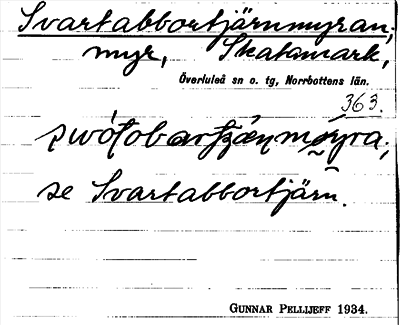 Svartabbortjärnmyran;
myr, Skatamark,
Överluleå sn o. tg, Norrbottens län.
363.
se Svartabbortjärn.
GUNNAR PELLIJEFF 1934.